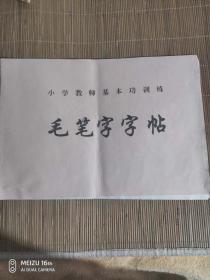 小学教师基本功训练
毛笔字字帖
MEIZU 16th
AI DUAL CAMERA